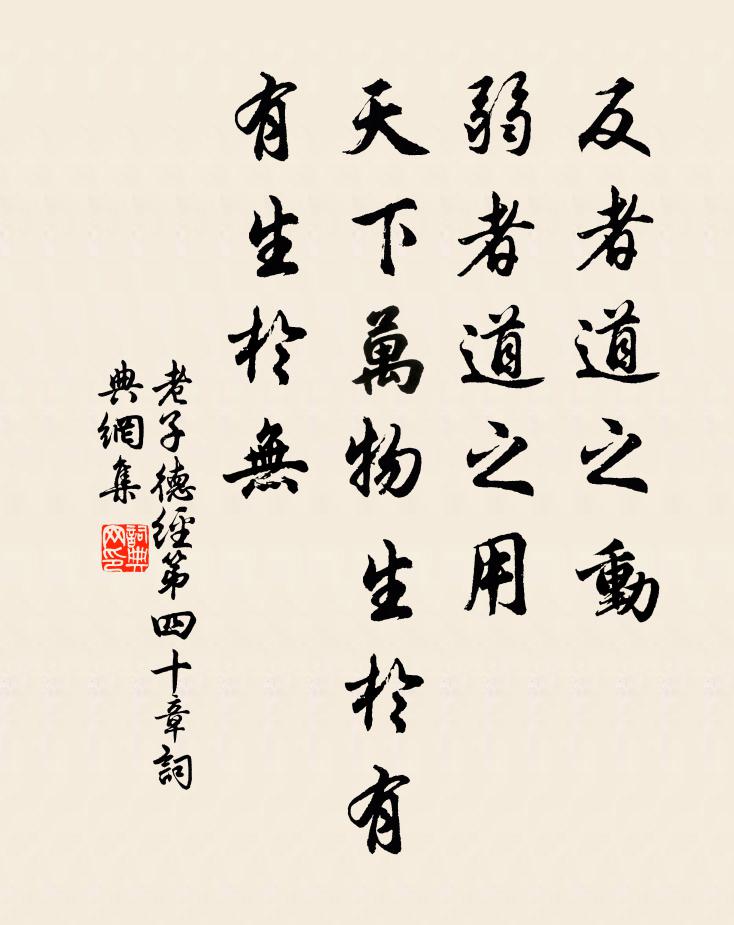 反者道之動
弱者道之用
天下萬物生於有
有生於無
老子德經第四十章詞
典網集
詞典
网印